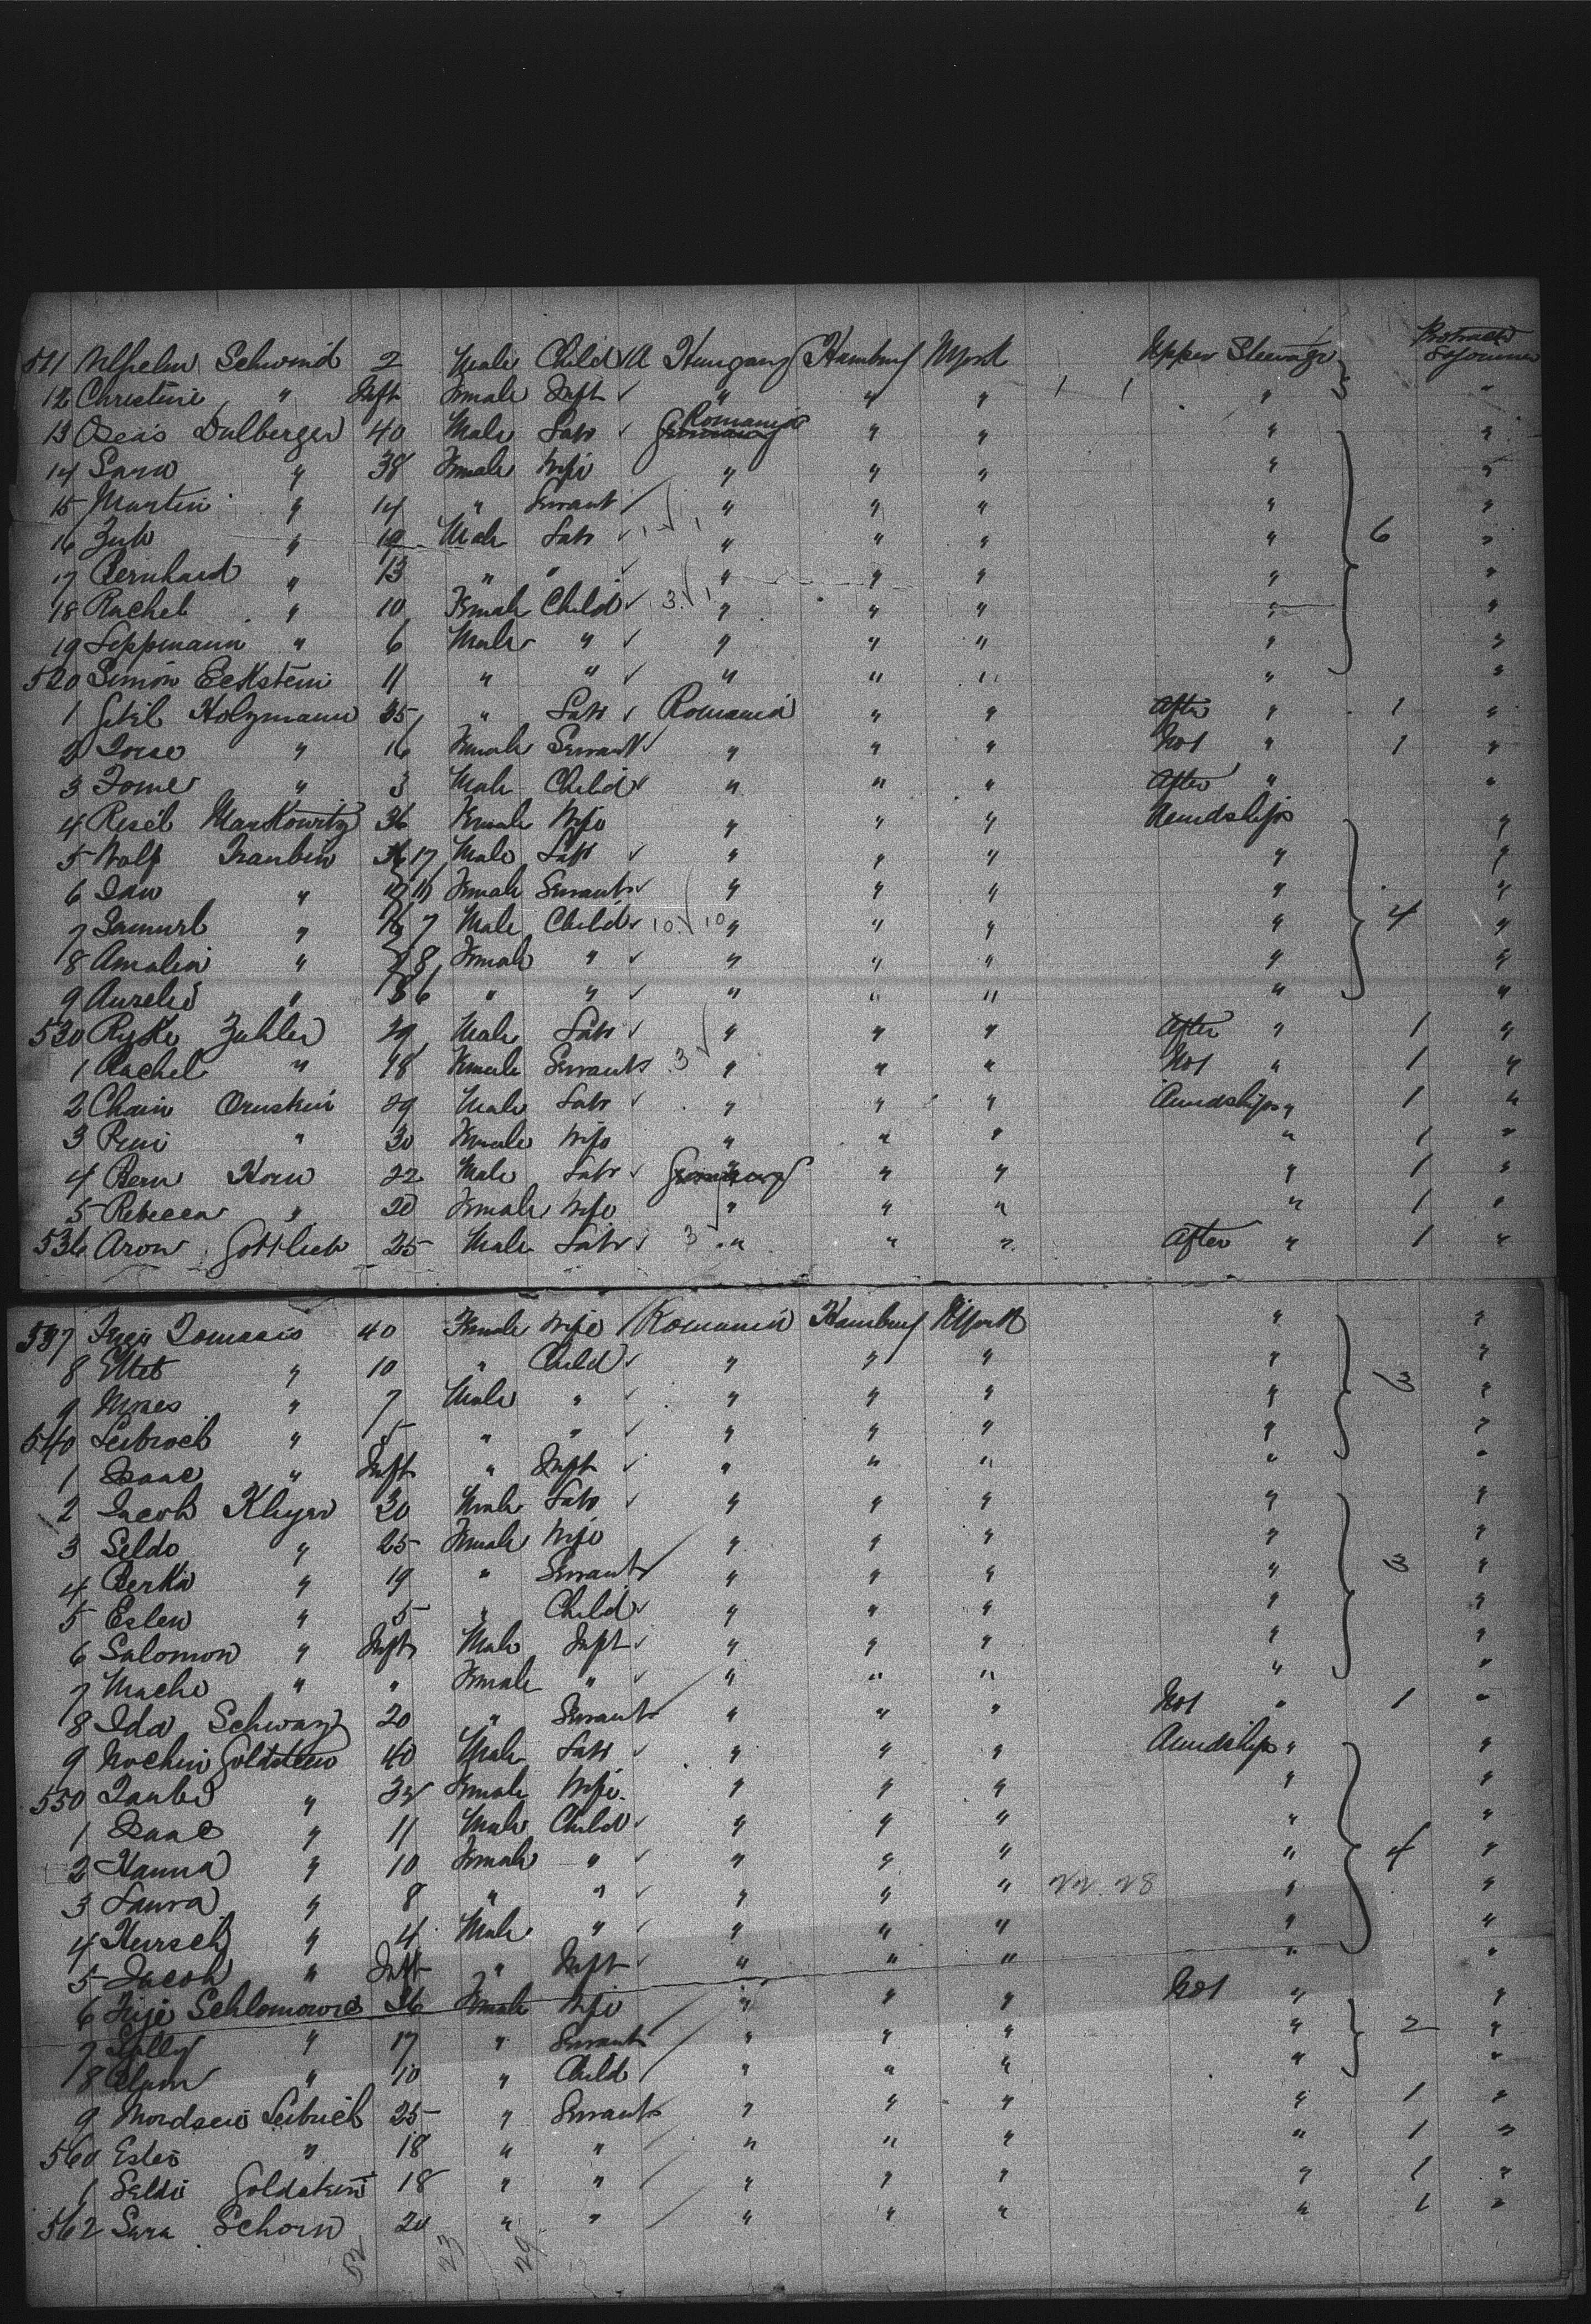 511 Wilhelm Schwind 2 Male Child Hungary Hamburg NYork 1 1 Upper Steerage Protracted Sojourn
12 Christine " Inft Female Inft " " " " "
13 Oseas Dulberger 40 Male Labr Germany Romania " " " "
14 Sara " 38 Female Wife " " " " "
15 Martin " 14 " Servant " " " " "
16 " 19 Male Labr " " " " 6 "
17 Bernhard " 13 " " " " " " "
18 Rachel " 10 Female Child 3 1 " " " " "
19 Leppmann " 6 Male " " " " " "
520 Simon Eckstein 11 " " " " " " "
1 Holzmann 35 " Labr Romania " " After " 1 "
2 " 16 Female Servant " " " Not " 1 "
3 " 3 Male Child " " " After " "
4 Resel Markowitz 36 Female Wife " " " Amidships "
5 Wolf 17 Male Labr " " " " "
6 " 11 Female Servant " " " " "
7 Samuel " 7 Male Child 10 10 " " " " 4 "
8 Amalia " 8 Female " " " " " "
9 Aurelie " 6 " " " " " " "
530 Zuhler 29 Male Labr " " " After " 1 "
1 Rachel " 18 Female Servant 3 " " " Not " 1 "
2 Chain Ornstein 29 Male Labr " " " Amidships " 1 "
3 " 30 Female Wife " " " " 1 "
4 Bern Korn 22 Male Labr Germany " " " " 1 "
5 Rebecca " 20 Female Wife " " " " 1 "
536 Aron Gottlieb 25 Male Labr 3 " " " After " 1 "
537 40 Female Wife Romania Hamburg NYork " "
8 " 10 " Child " " " " "
9 Moses " 7 Male " " " " " 3 "
540 " 5 " " " " " " "
1 Isaac " Inft " Inft " " " " "
2 Jacob 30 Male Labr " " " " "
3 Seldo " 25 Female Wife " " " " "
4 Berka " 19 " Servant " " " " 3 "
5 Ester " 5 " Child " " " " "
6 Salomon " Inft Male Inft " " " " "
7 Mache " " Female " " " " " "
8 Ida Schwarz 20 " Servant " " " Not " 1 "
9 Nochim Goldstein 40 Male Labr " " " Amidships " "
550 Taube " Female Wife " " " " "
1 Isaac " 11 Male Child " " " " "
2 Hanna " 10 Female " " " " " 4 "
3 Laura " 8 " " " " " 28 " "
4 Hersch " 4 Male " " " " " "
5 Jacob " Inft " Inft " " " " "
6 36 Female Wife " " " Not " "
7 " 17 " Servant " " " " 2 "
8 " 10 " Child " " " " "
9 Leibrich 25 " Servant " " " " 1 "
560 " 18 " " " " " " 1 "
1 Seldi Goldstein 18 " " " " " " 1 "
562 Sara Schorn 20 " " " " " " 1 "
52 23 29